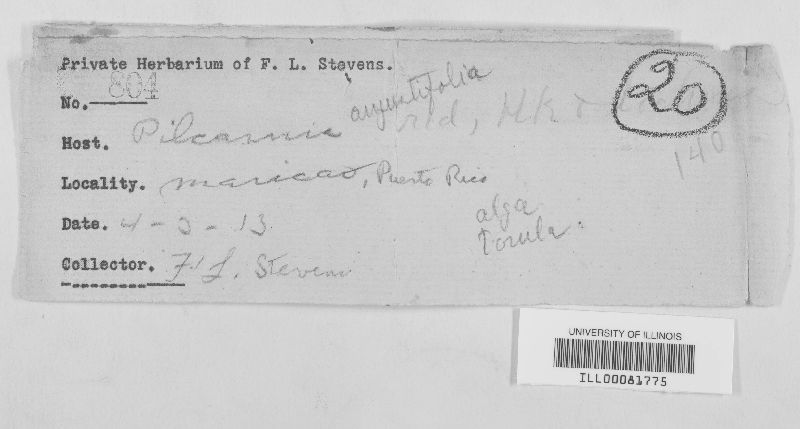 Private Herbarium of F. L. Stevens.
No. 804
Host. Pilcarnia angustifolia
Locality. Maricao, Puerto Rico
Date. 4-3-13
Collector. F. L. Stevens
20
140
alga
Torula.
UNIVERSITY OF ILLINOIS
ILL00081775